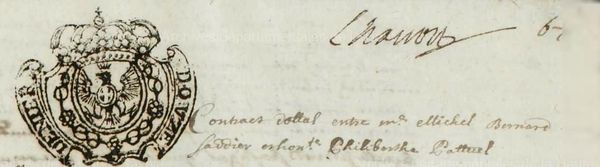 67
DOUZE DENIER
Contract dottal entre me Michel Bernard
saddier et honte Philiberthe Pattuel